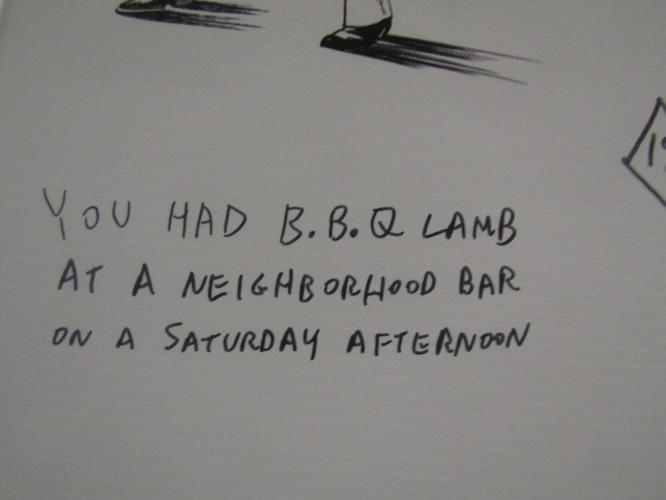 YOU HAD B.B.Q LAMB
AT A NEIGHBORHOOD BAR
ON A SATURDAY AFTERNOON